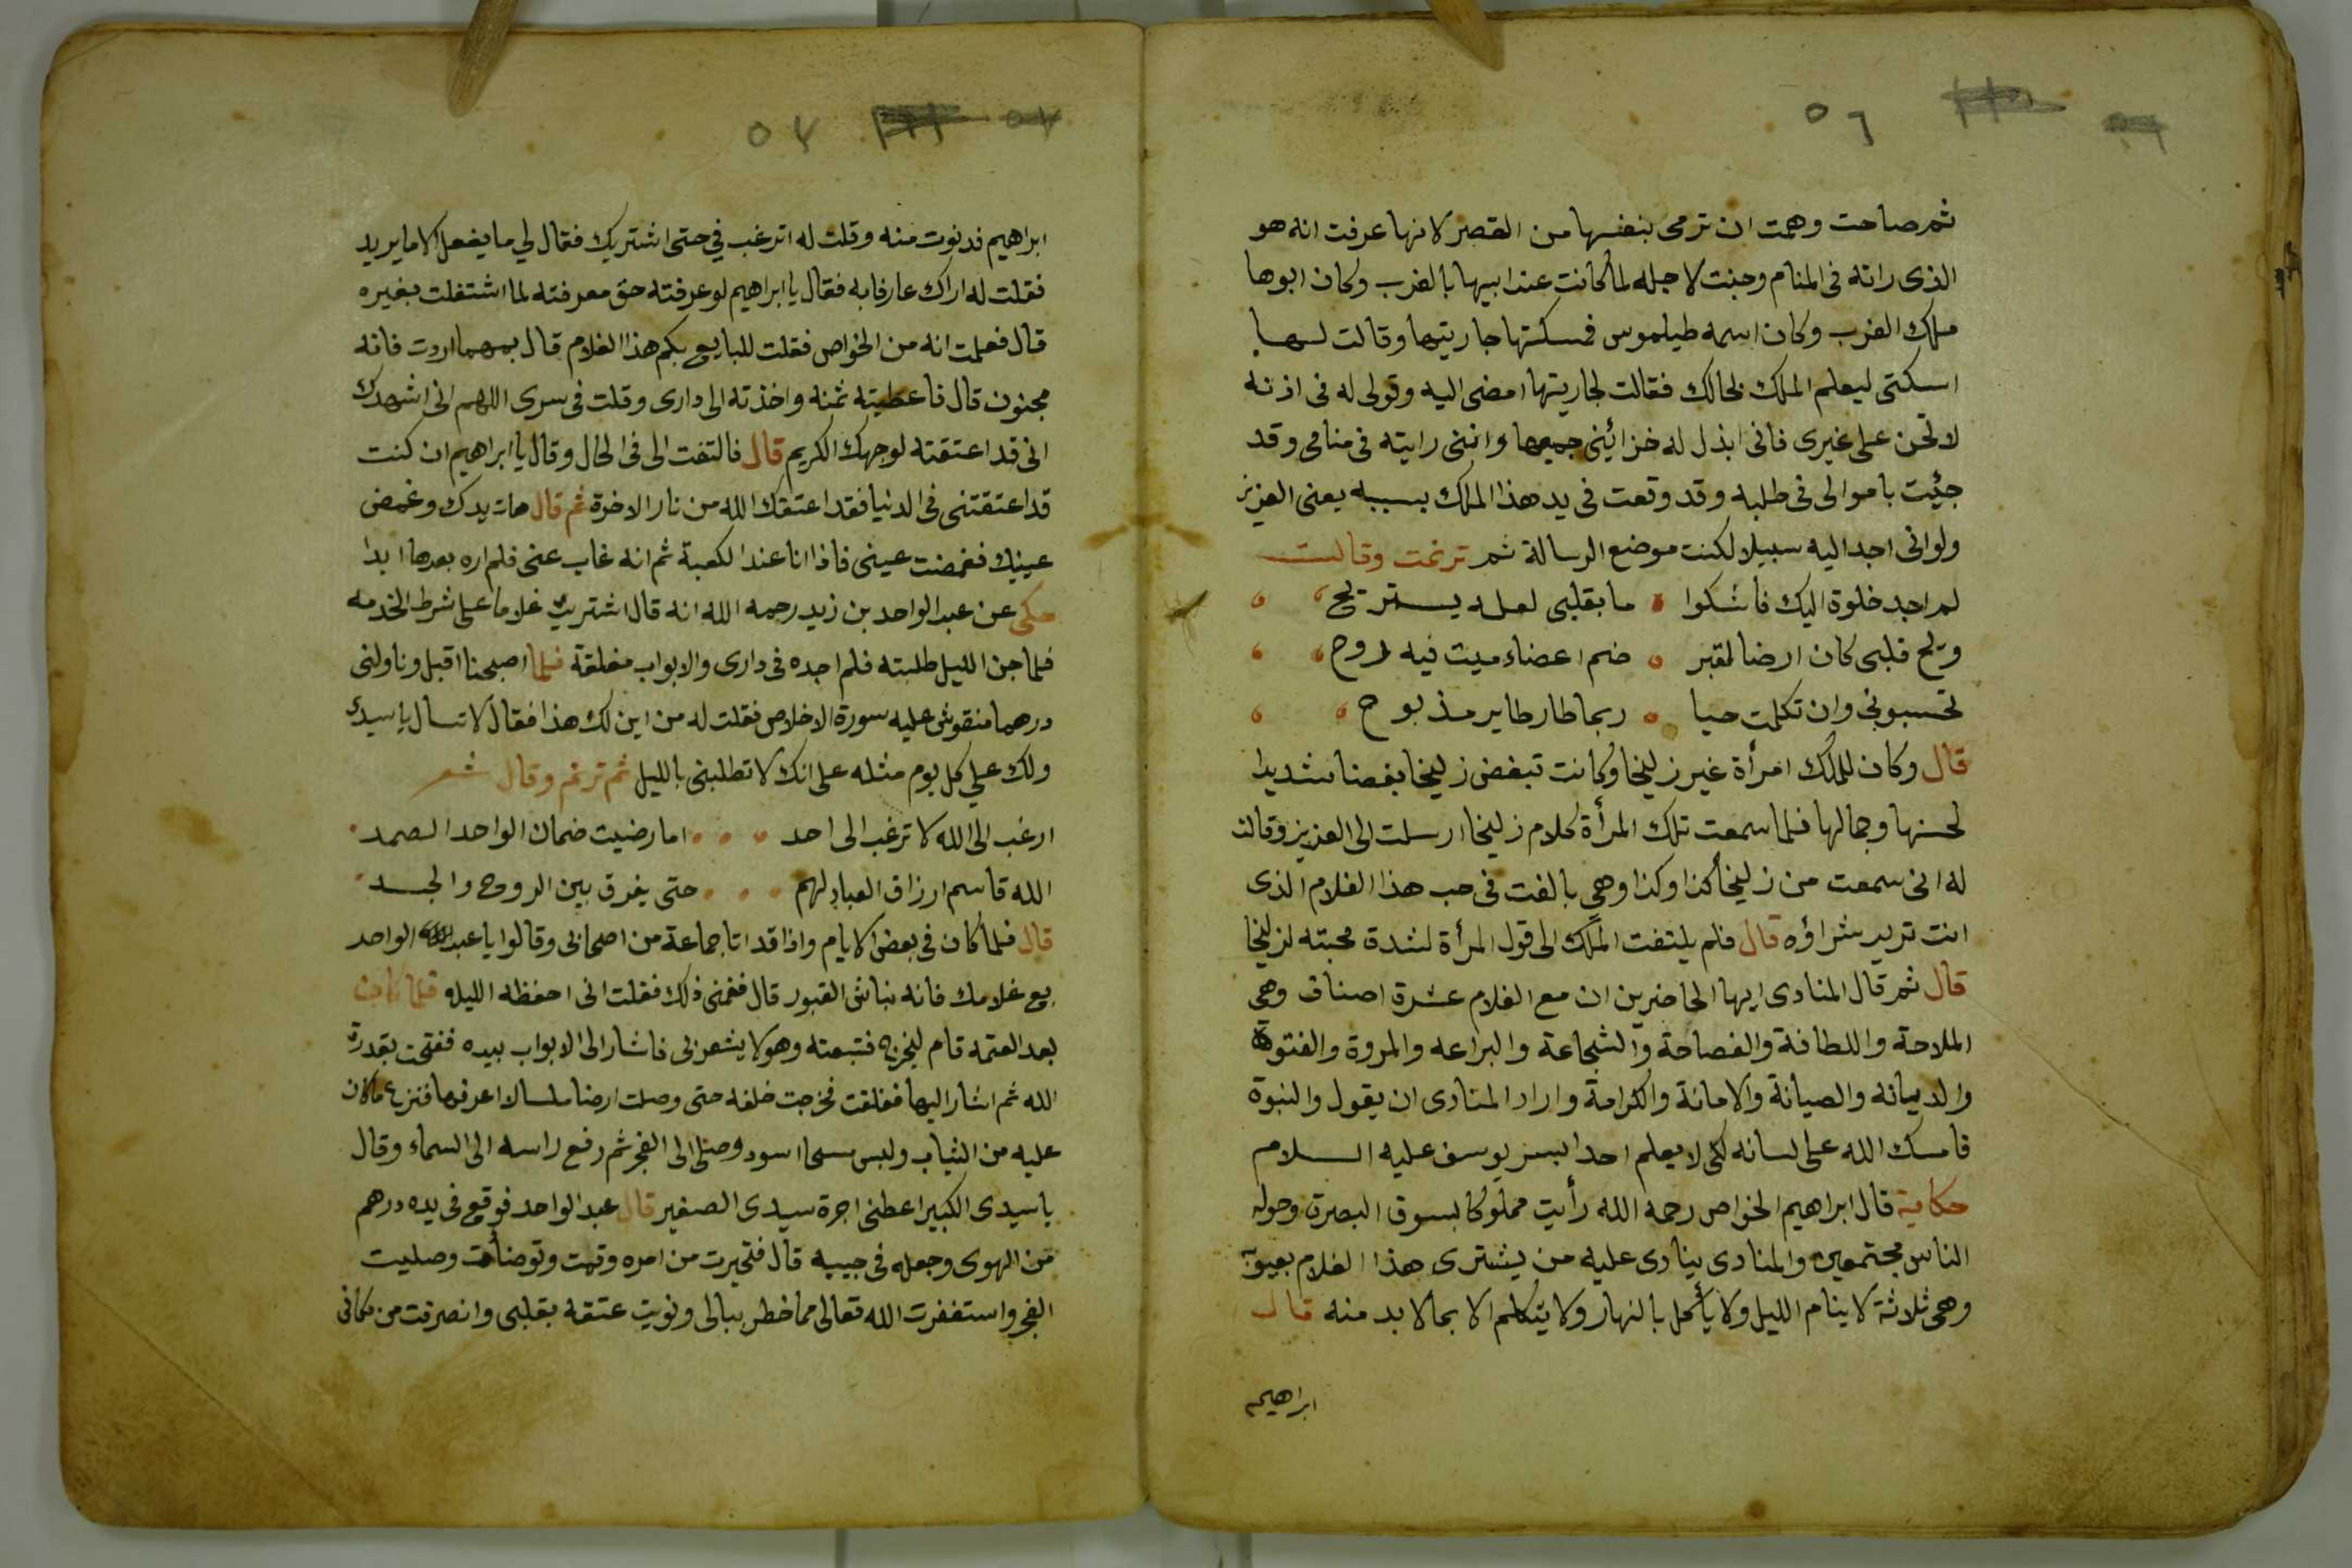 ٥٦
ثم صاحت وهمت ان ترمى بنفسها من القصر لانها عرفت انه هو
الذى راته فى المنام وجئت لاجله لما كانت عند ابيها بالغرب وكان ابوها
ملك الغرب وكان اسمه طيلموس فمسكتها جاريتها وقالت لها
اسكتى ليعلم الملك بحالك فقالت لجاريتها امضى اليه وقولى له فى اذنه
لا تحن على غيرى فانى ابذل له خزائينى جميعها وانى رايته فى منامى وقد
جئيت باموالى فى طلبه وقد وقعت فى يد هذا الملك بسببه يعنى العزيز
ولوانى اجد اليه سبيلا لكنت موضع الرسالة ثم ترنمت وقالت
لم اجد خلوة اليك فاشكوا ما بقلبى لعله يستريح
ويح قلبى كان ارضا لقبر ضم اعضاء ميت فيه روح
تحسبونى وان تكلمت حيا ربما طار طاير مذبوح
قال وكان للملك امرأة غير زليخا وكانت تبغض زليخا بغضا شديدا
لحسنها وجمالها فلما سمعت تلك المرأة كلام زليخا ارسلت الى العزيز وقالت
له انى سمعت من زليخا كذا وكذا وهى بالغت فى حب هذا الغلام الذى
انت تريد شراؤه قال فلم يلتفت الملك الى قول المرأة لشدة محبته لزليخا
قال ثم قال المنادى ايها الحاضرين ان مع الغلام عشرة اصناف وهى
الملاحة واللطافة والفصاحة والشجاعة والبراعه والمروة والفتوة
والديانه والصيانة والامانة والكرامة واراد المنادى ان يقول والنبوة
فامسك الله على لسانه لكى لا يعلم احد البسر يوسف عليه السلام
حكاية قال ابراهيم الخواص رحمه الله رأيت مملوكا بسوق البصرة وحوله
الناس مجتمعين والمنادى ينادى عليه من يشترى هذا الغلام بعيوبه
وهى ثلاثة لا ينام الليل ولا يأكل بالنهار ولا يتكلم الا بما لا بد منه قال
ابراهيم
٥٧
ابراهيم فدنوت منه وقلت له اترغب فى حتى اشتريك فقال لى ما يفعل الا ما يريد
فقلت له اراك عارفا به فقال يا ابراهيم لو عرفته حق معرفته لما اشتغلت بغيره
قال فعلمت انه من الخواص فقلت للبايع بكم هذا الغلام قال بمهما اردت فانه
مجنون قال فاعطيته ثمنه واخذته الى دارى وقلت فى سرى اللهم انى اشهدك
انى قد اعتقته لوجهك الكريم قال فالتفت الى فى الحال وقال يا ابراهيم ان كنت
قد اعتقتنى فى الدنيا فقد اعتقك الله من نار الاخرة ثم قال هات يدك وغمض
عينيك فغمضت عينى فاذا انا عند الكعبة ثم انه غاب عنى فلم اره بعدها ابدا
حكى عن عبد الواحد بن زيد رحمه الله انه قال اشتريت غلاما على شرط الخدمه
فلما جن الليل طلبته فلم اجده فى دارى والابواب مغلقة فلما اصبحنا اقبل وناولنى
درهما منقوش عليه سورة الاخلاص فقلت له من اين لك هذا فقال لا تسال يا سيدى
ولك علي كل يوم مثله على انك لا تطلبنى بالليل ثم ترنم وقال شعر
ارغب الى الله لا ترغب الى احد اما رضيت ضمان الواحد الصمد
الله قاسم ارزاق العباد لهم حتى يفرق بين الروح والجسد
قال فلما كان فى بعض الايام واذا قد اتا جماعة من اصحابى وقالوا يا عبد الواحد
بع غلامك فانه نباش القبور قال فغمنى ذلك فقلت انى احفظه الليلة فلما كان
بعد العتمه قام ليخرج فتبعته وهو لا يشعر بى فاشار الى الابواب بيده ففتحت بقدرة
الله ثم اشار اليها فغلقت فخرجت خلفه حتى وصلت ارضا ملسا لا اعرفها فنزع ما كان
عليه من الثياب ولبس مسحا اسود وصلى الى الفجر ثم رفع راسه الى السماء وقال
يا سيدى الكبير اعطنى اجرة سيدى الصغير قال عبد الواحد فوقع فى يده درهم
من الهوى وجعله فى جيبه قال فتحيرت من امره وقمت وتوضأت وصليت
الفجر واستغفرت الله تعالى مما خطر ببالى ونويت عتقه بقلبى وانصرفت من مكانى